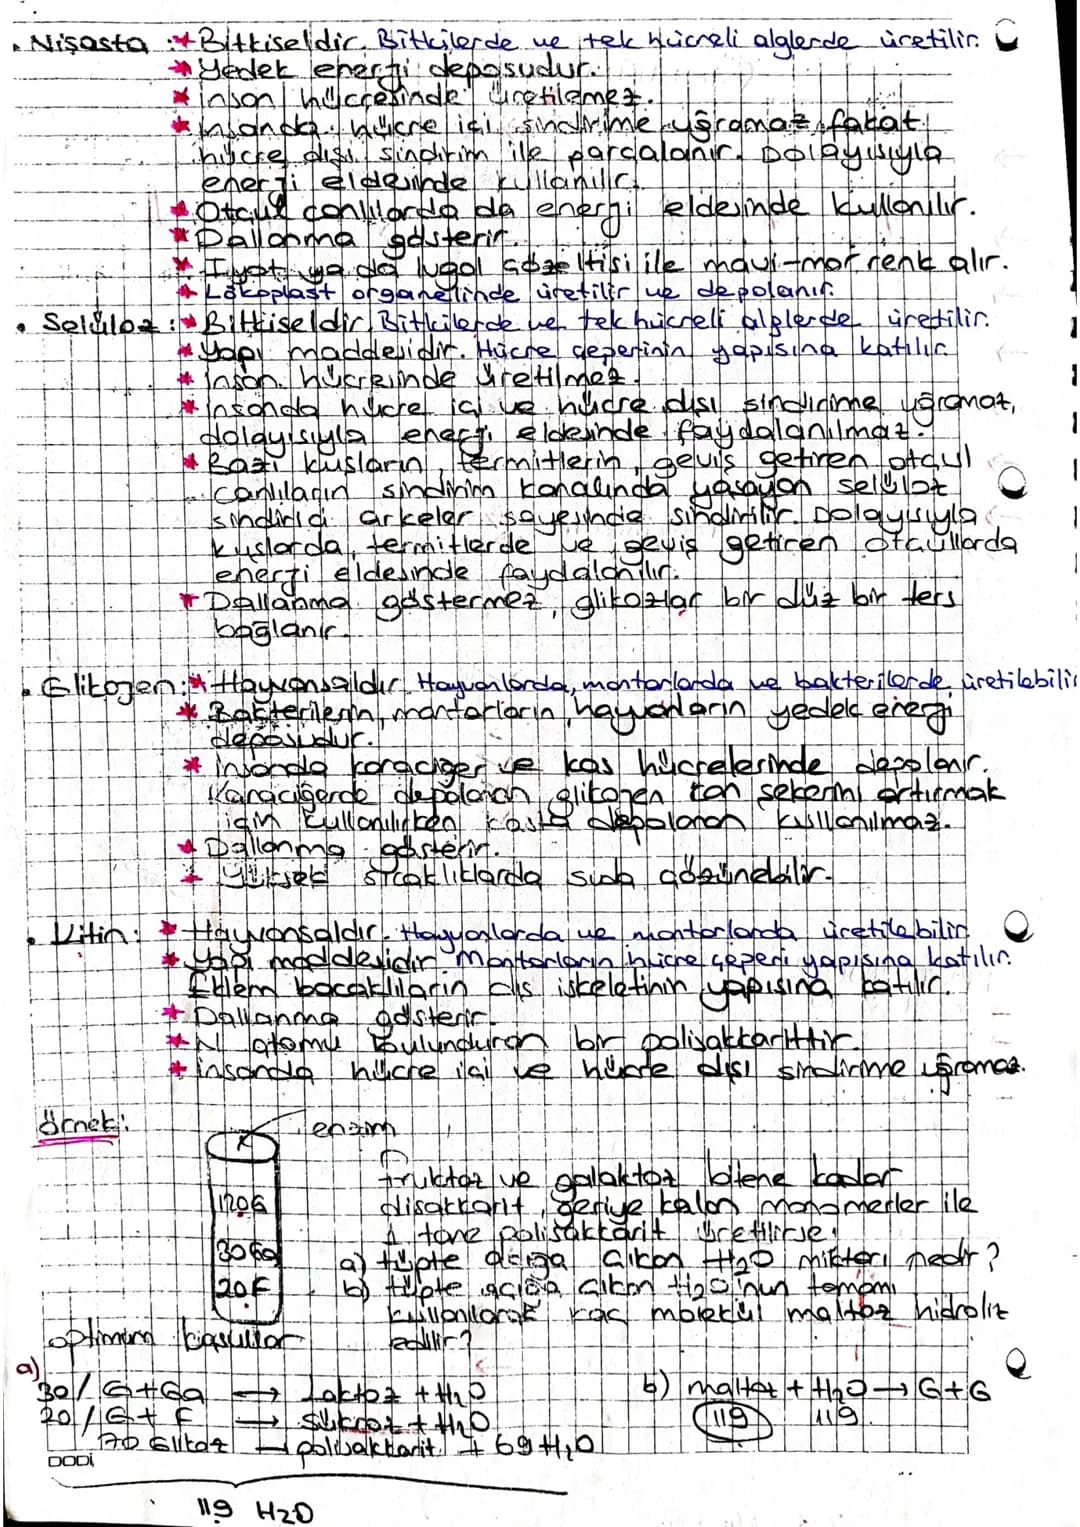 • Nişasta : * Bitkiseldir. Bitkilerde ve tek hücreli alglerde üretilir.
* Yedek enerji deposudur.
* İnsan hücresinde üretilemez.
* İnsanda hücre içi sindirime uğramaz fakat
hücre dışı sindirim ile parçalanır. Dolayısıyla
enerji eldesinde kullanılır.
* Otçul canlılarda da enerji eldesinde kullanılır.
* Dallanma gösterir.
* İyot ya da lugol çözeltisi ile mavi-mor renk alır.
* Lökoplast organelinde üretilir ve depolanır.
• Selüloz : * Bitkiseldir. Bitkilerde ve tek hücreli alglerde üretilir.
* Yapı maddesidir. Hücre çeperinin yapısına katılır.
* İnsan hücresinde üretilmez.
* İnsanda hücre içi ve hücre dışı sindirime uğramaz,
dolayısıyla enerji eldesinde faydalanılmaz.
* Bazı kuşların, termitlerin, geviş getiren otçul
canlıların sindirim kanalında yaşayan selüloz
sindirici arkeler sayesinde sindirilir. Dolayısıyla
kuşlarda, termitlerde ve geviş getiren otçullarda
enerji eldesinde faydalanılır.
* Dallanma göstermez, glikozlar bir düz bir ters
bağlanır.
• Glikojen : * Hayvansaldır. Hayvanlarda, mantarlarda ve bakterilerde üretilebilir
* Bakterilerin, mantarların, hayvanların yedek enerji
deposudur.
* İnsanda karaciğer ve kas hücrelerinde depolanır.
Karaciğerde depolanan glikojen kan şekerini artırmak
için kullanılırken kasta depolanan kullanılmaz.
* Dallanma gösterir.
* Yüksek sıcaklıklarda suda çözünebilir.
• Kitin : * Hayvansaldır. Hayvanlarda ve mantarlarda üretilebilir.
* Yapı maddesidir. Mantarların hücre çeperi yapısına katılır.
Eklem bacaklıların dış iskeletinin yapısına katılır.
* Dallanma gösterir.
* N atomu bulunduran bir polisakkarittir.
* İnsanda hücre içi ve hücre dışı sindirime uğramaz.
Örnek:
X enzim
120G
30Ga
20F
optimum koşullar
Fruktoz ve galaktoz bitene kadar
disakkarit, geriye kalan monomerler ile
1 tane polisakkarit üretilirse.
a) tüpte açığa çıkan H2O miktarı nedir?
b) tüpte açığa çıkan H2O'nun tamamı
kullanılarak kaç molekül maltoz hidroliz
edilir?
a)
30/ G+Ga → Laktoz + H2O
20/ G+F → Sükroz + H2O
70 Glikoz → polisakkarit + 69 H2O
119 H2O
b) maltoz + H2O → G+G
119 119
DODİ